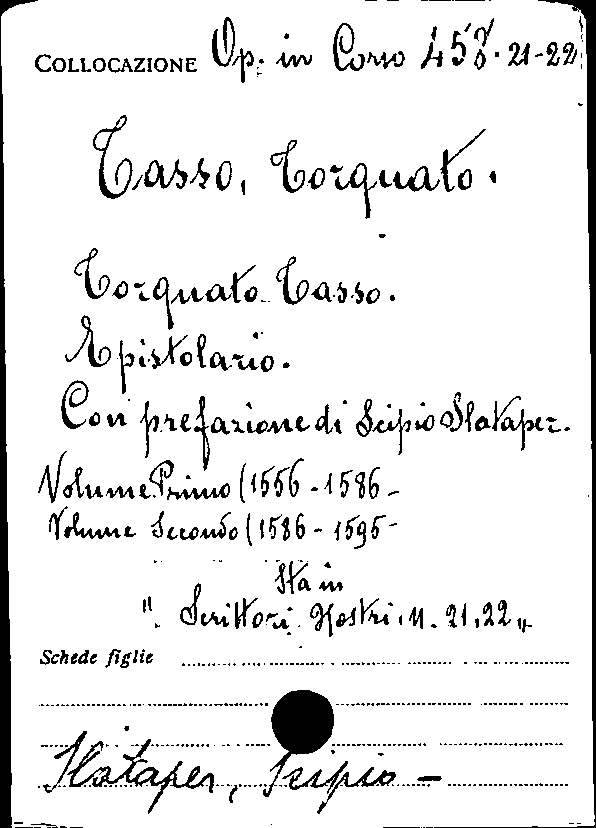 COLLOCAZIONE Op. in Corso 458. 21-22
Tasso, Torquato.
Torquato Tasso.
Epistolario.
Con prefazione di Scipio Slataper.
Volume Primo (1556-1586-
Volume Secondo (1586-1595-
Sta in
". Scrittori Nostri. N. 21, 22 "
Schede figlie
Slataper, Scipio -